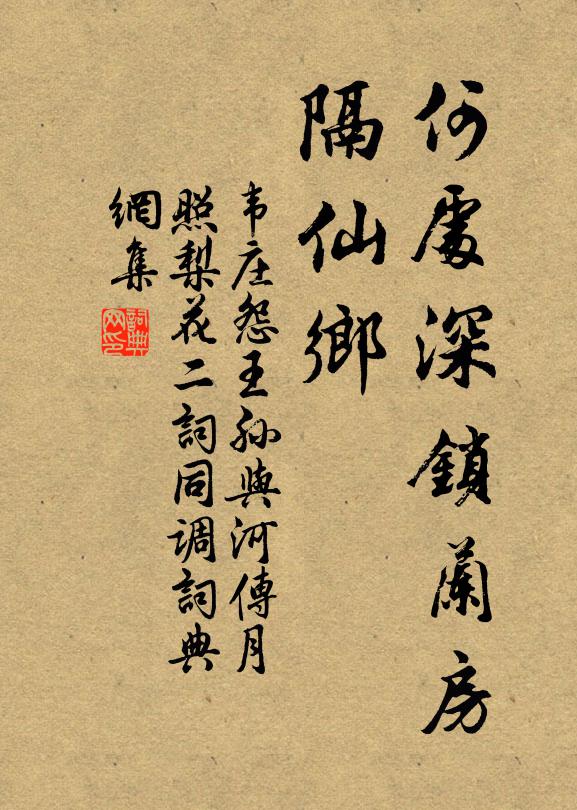 何處深鎖蘭房
隔仙鄉
韦庄怨王孙與河傳月
照梨花二詞同调詞典
網集
詞典网印